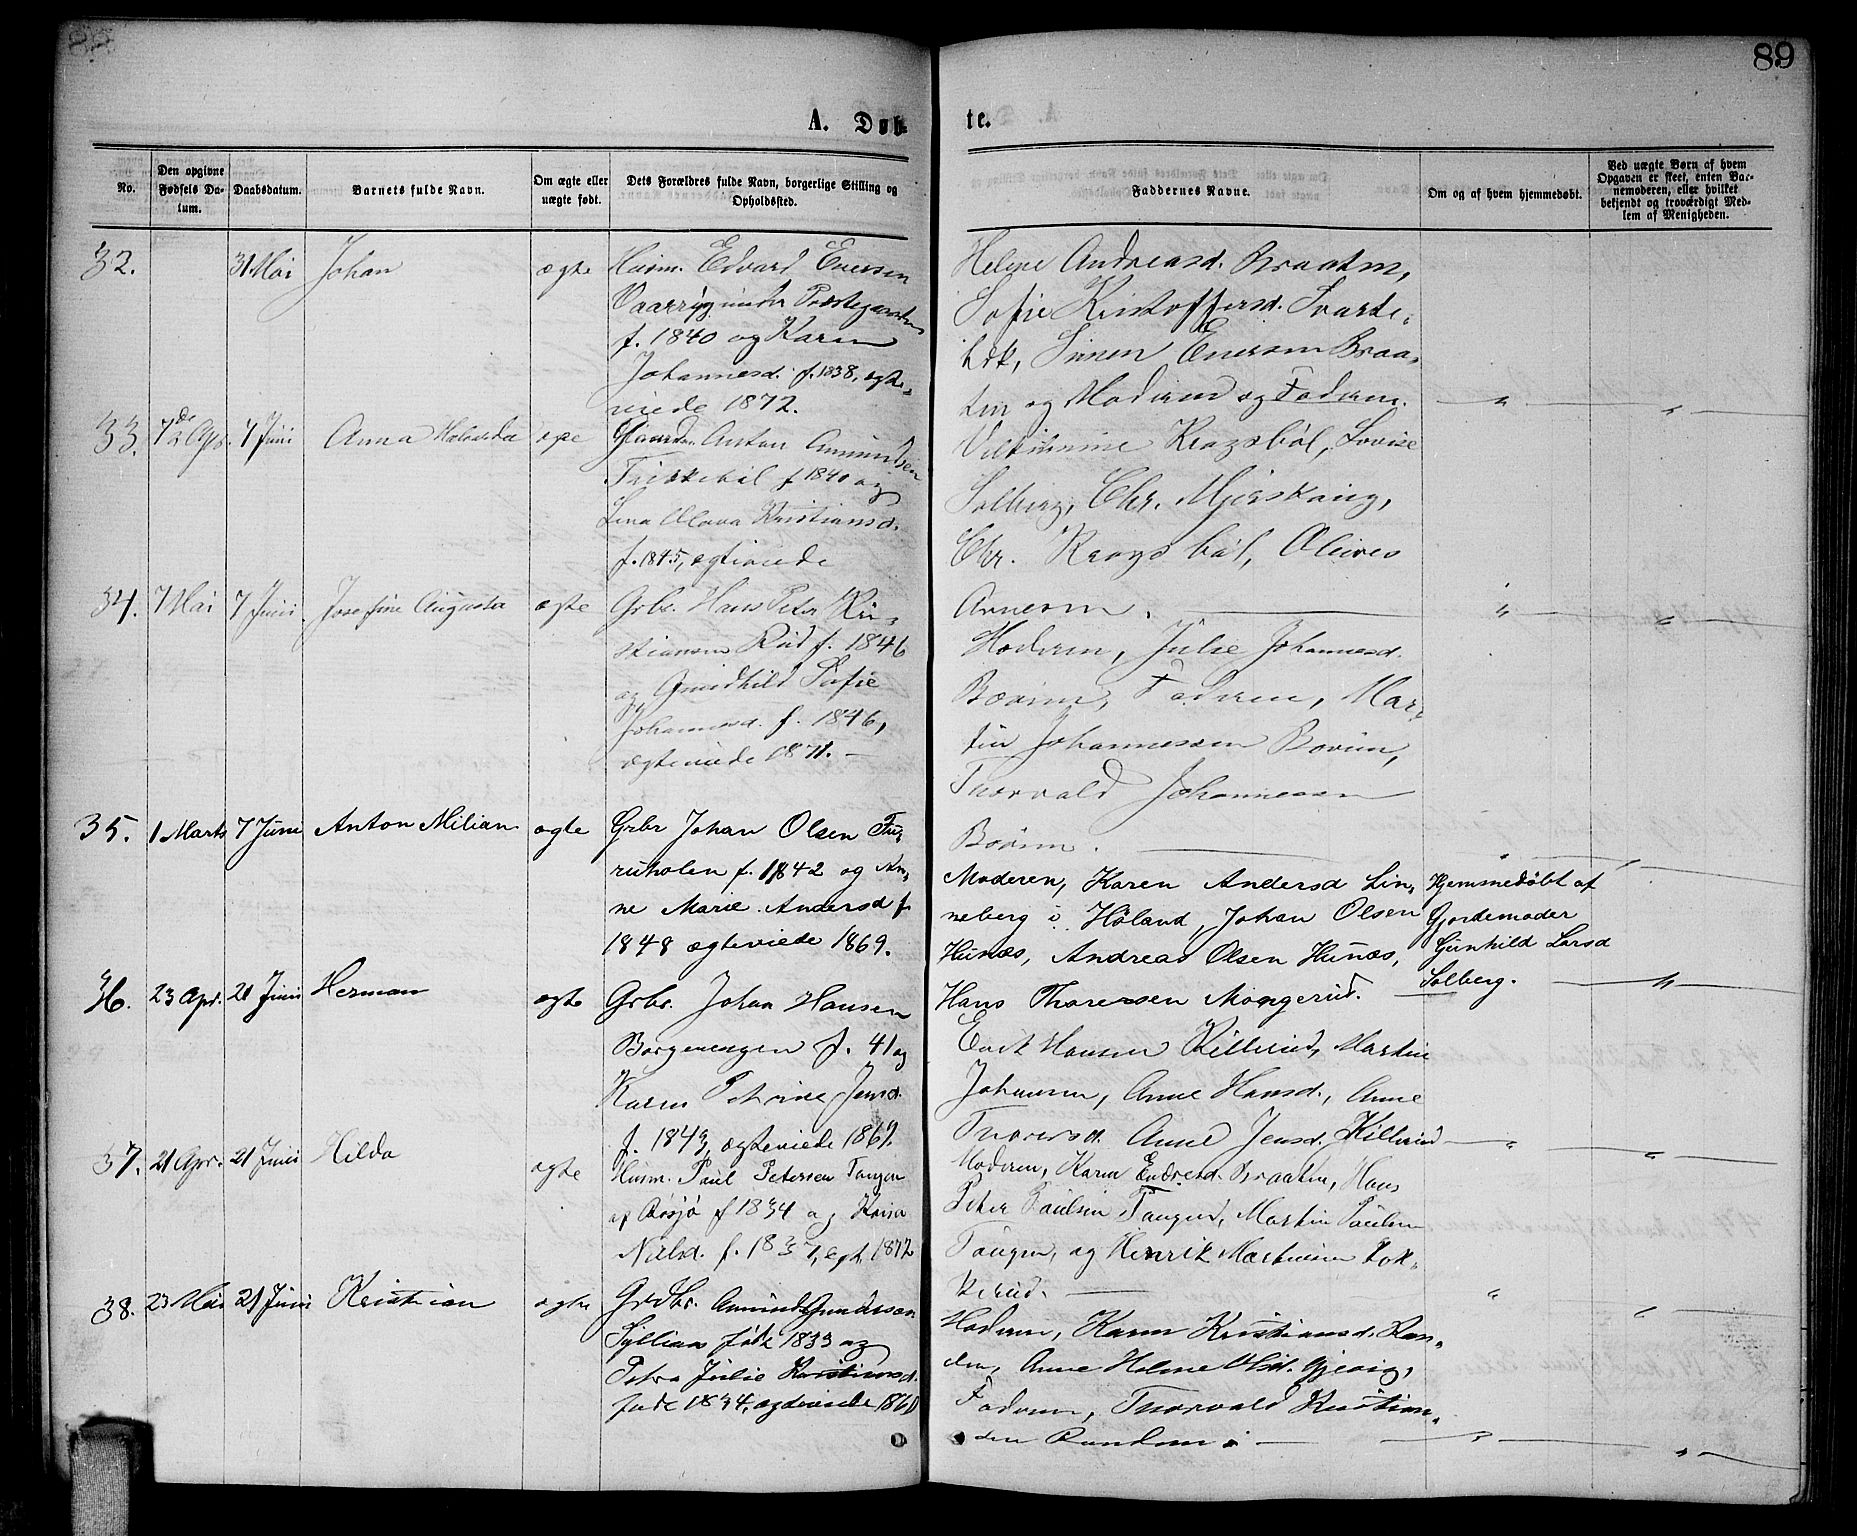 89
A. Døb-
te.
No.
Den opgivne Fødsels Da-tum.
Daabsdatum.
Barnets fulde Navn.
Om ægte eller uægte født.
Dets Forældres fulde Navn, borgerlige Stilling og Opholdssted.
Faddernes Navne.
Om og af hvem hjemmedøbt.
Ved uægte Børn af hvem Opgaven er skeet, enten Bar-nemoderen, eller hvilket bekjendt og troværdigt Med-lem af Menigheden.
32.
31 Mai
Johan
ægte
Husm. Edvard Enersen
under Præstegaarden
f. 1840 og Karen
Johannesd. f. 1838, ægte-
viede 1872.
Helene Andreasd. Braaten,
Sofie Kristoffersd. Svarte-
bæk, Simen Enersen Braa-
ten og Moderen og Faderen.
33.
7de Apr.
7 Juni
Anna
ægte
Gaardm. Anton Amundsen
f 1840 og
Lina Olava Kristiansd.
f. 1845, ægteviede
Vilhelmine Kragsbøl, Lovise
Solberg, Chr. Mjerskaug,
Chr. Kragsbøl, Oliver
Arnesen.
34.
7 Mai
7 Juni
Josefine Augusta
ægte
Grbr. Hans Peter Kri-
stiansen Rud f. 1846
og Gundhild Sofie
Johannesd. f. 1846,
ægteviede 1871. —
Moderen, Julie Johannesd.
Bovim, Faderen, Mar-
tin Johannessen Bovim,
Thorvald Johannessen
Bovim.
35.
1 Marts
7 Juni
Anton Milian
ægte
Grbr Johan Olsen Fu-
ruholen f. 1842 og An-
ne Marie Andersd f.
1848 ægteviede 1869.
Moderen, Karen Andersd Lin-
neberg i Høland, Johan Olsen
Hunæs, Andreas Olsen Hunæs,
Hans Thoresen Mongerud.
Hjemmedøbt af
Gjordemoder
Gunhild Larsd
Solberg.
36.
23 Apr.
21 Juni
Herman
ægte
Grbr. Johan Hansen
Borgerengen f. 41 og
Karen Petrine Jensd.
f. 1843, ægteviede 1869.
Hansen Killerud, Martin
Johansen, Anne Hansd., Anne
Thoresd. Anne Jensd. Killerud
37.
21 Apr.
21 Juni
Hilda
ægte
Husm. Paul Petersen Tangen
af Røsjø f 1834 og Kaisa
Nielsd. f. 1837, egt. 1872
Moderen, Karen Endresd. Braaten, Hans
Peter Paulsen Tangen, Martin Paulsen
Tangen, og Henrik Martinsen Rok-
kerud.
38.
23 Mai
21 Juni
Kristian
ægte
Grdbr. Amund Gundersen
Sylliaas født 1833 og
Petra Julie Kristiansd.
født 1834, ægteviede 1860
Moderen, Karen Kristiansd. Ran-
den, Anne Helene Olsd. Gjevig,
Faderen, Thorvald Kristian-
sen Randen.